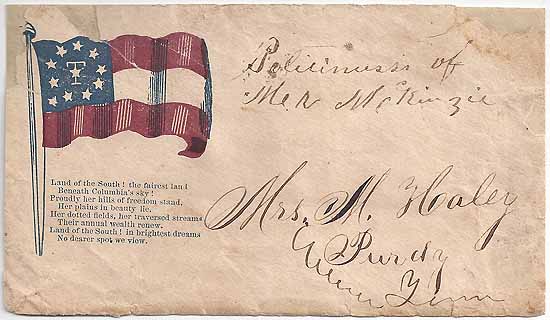 T
Land of the South! the fairest land
Beneath Columbia's sky!
Proudly her hills of freedom stand,
Her plains in beauty lie.
Her dotted fields, her traversed streams
Their annual wealth renew.
Land of the South! in brightest dreams
No dearer spot we view.
Politiness of
Mr McKinzie
Mrs. M. Haley
Purdy
Tenn